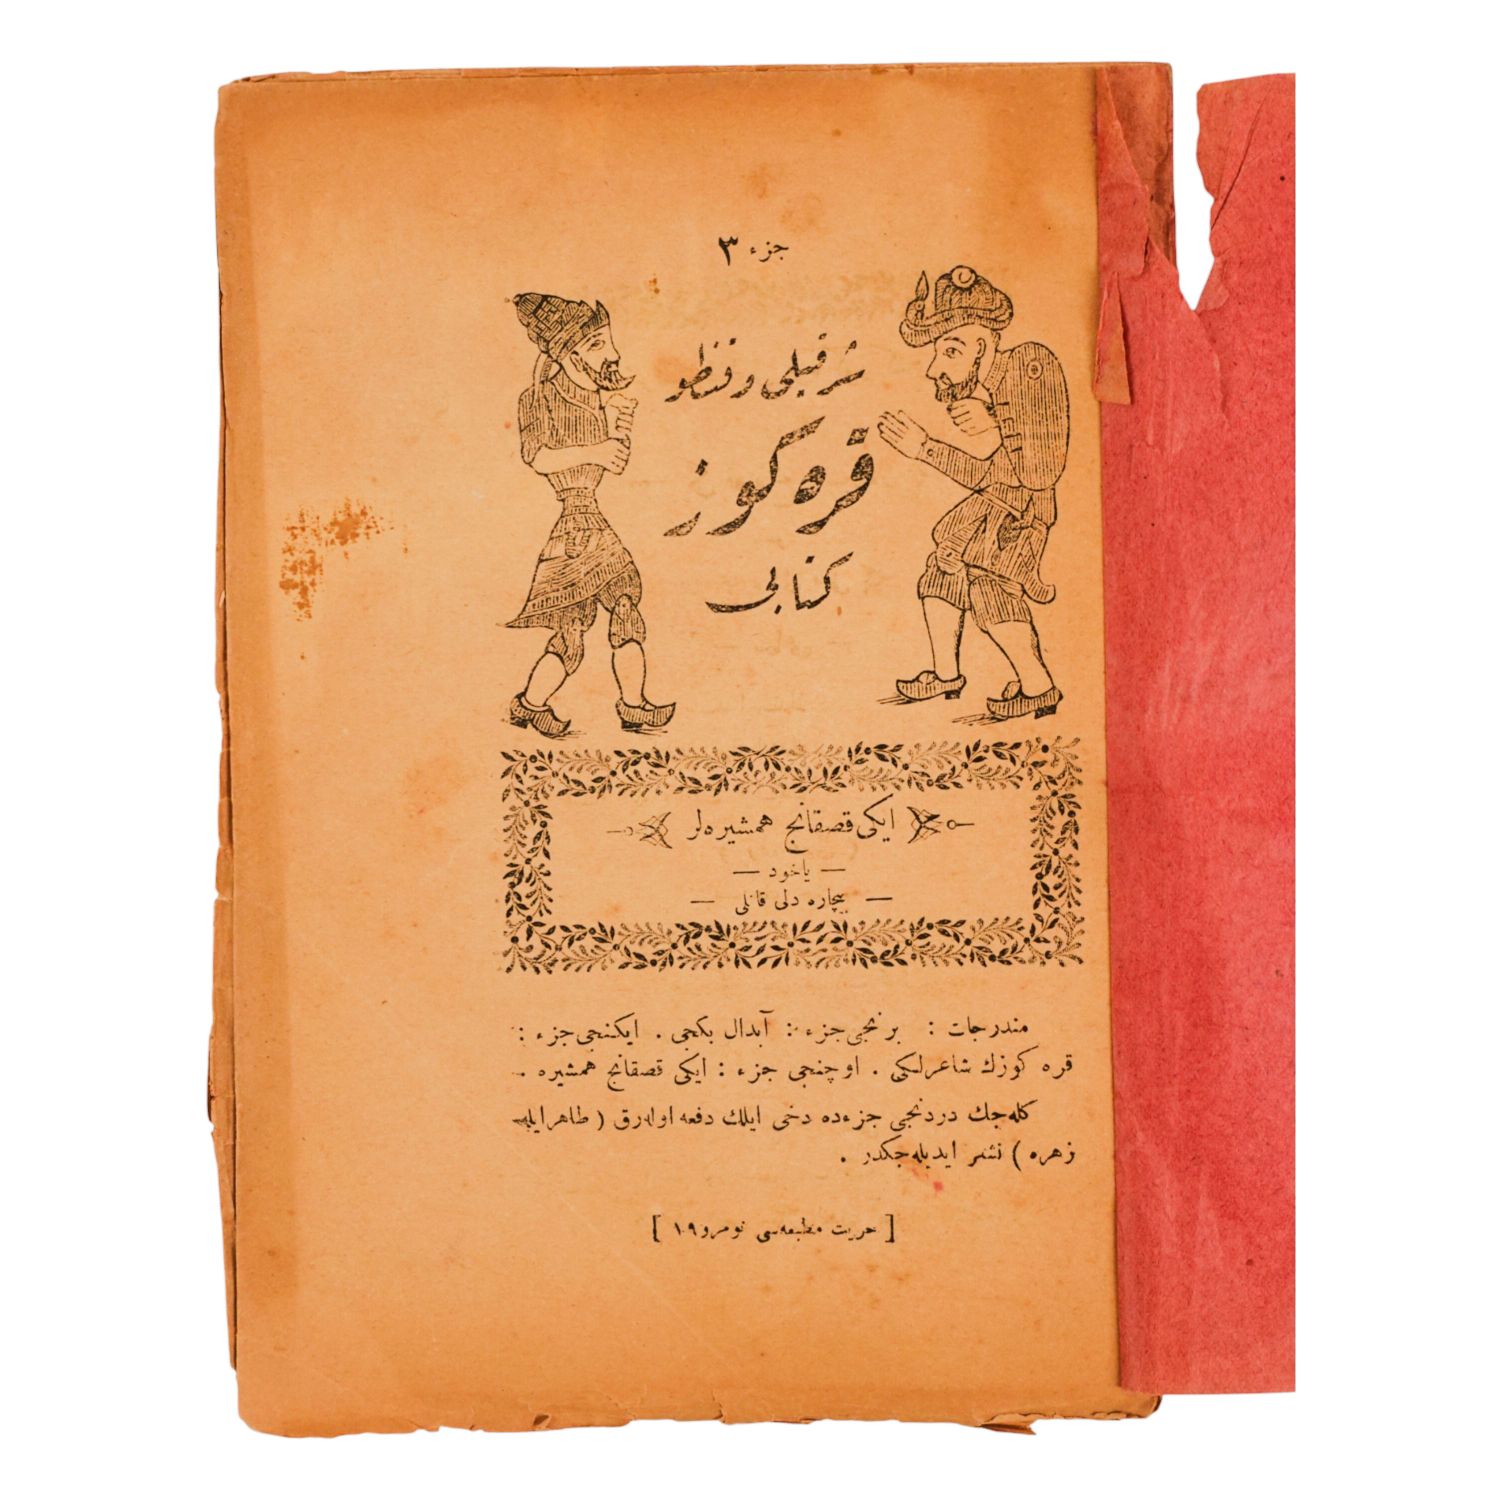 جزء ۳
شرقیلی و قنطو
قره كوز
كتابی
ایكی قصقانج همشیره‌لر
— یاخود —
— بیچاره دلی قانلی —
مندرجات : برنجی جزء : آبدال بكجی . ایكنجی جزء :
قره كوزك شاعرلكی . اوچنجی جزء : ایكی قصقانج همشیره .
كله‌جك دردنجی جزءده دخی ایلك دفعه اوله‌رق ( طاهر ایله
زهره ) نشر ایدیله‌جكدر .
[ حریت مطبعه‌سی نومرو ۱۰۹ ]